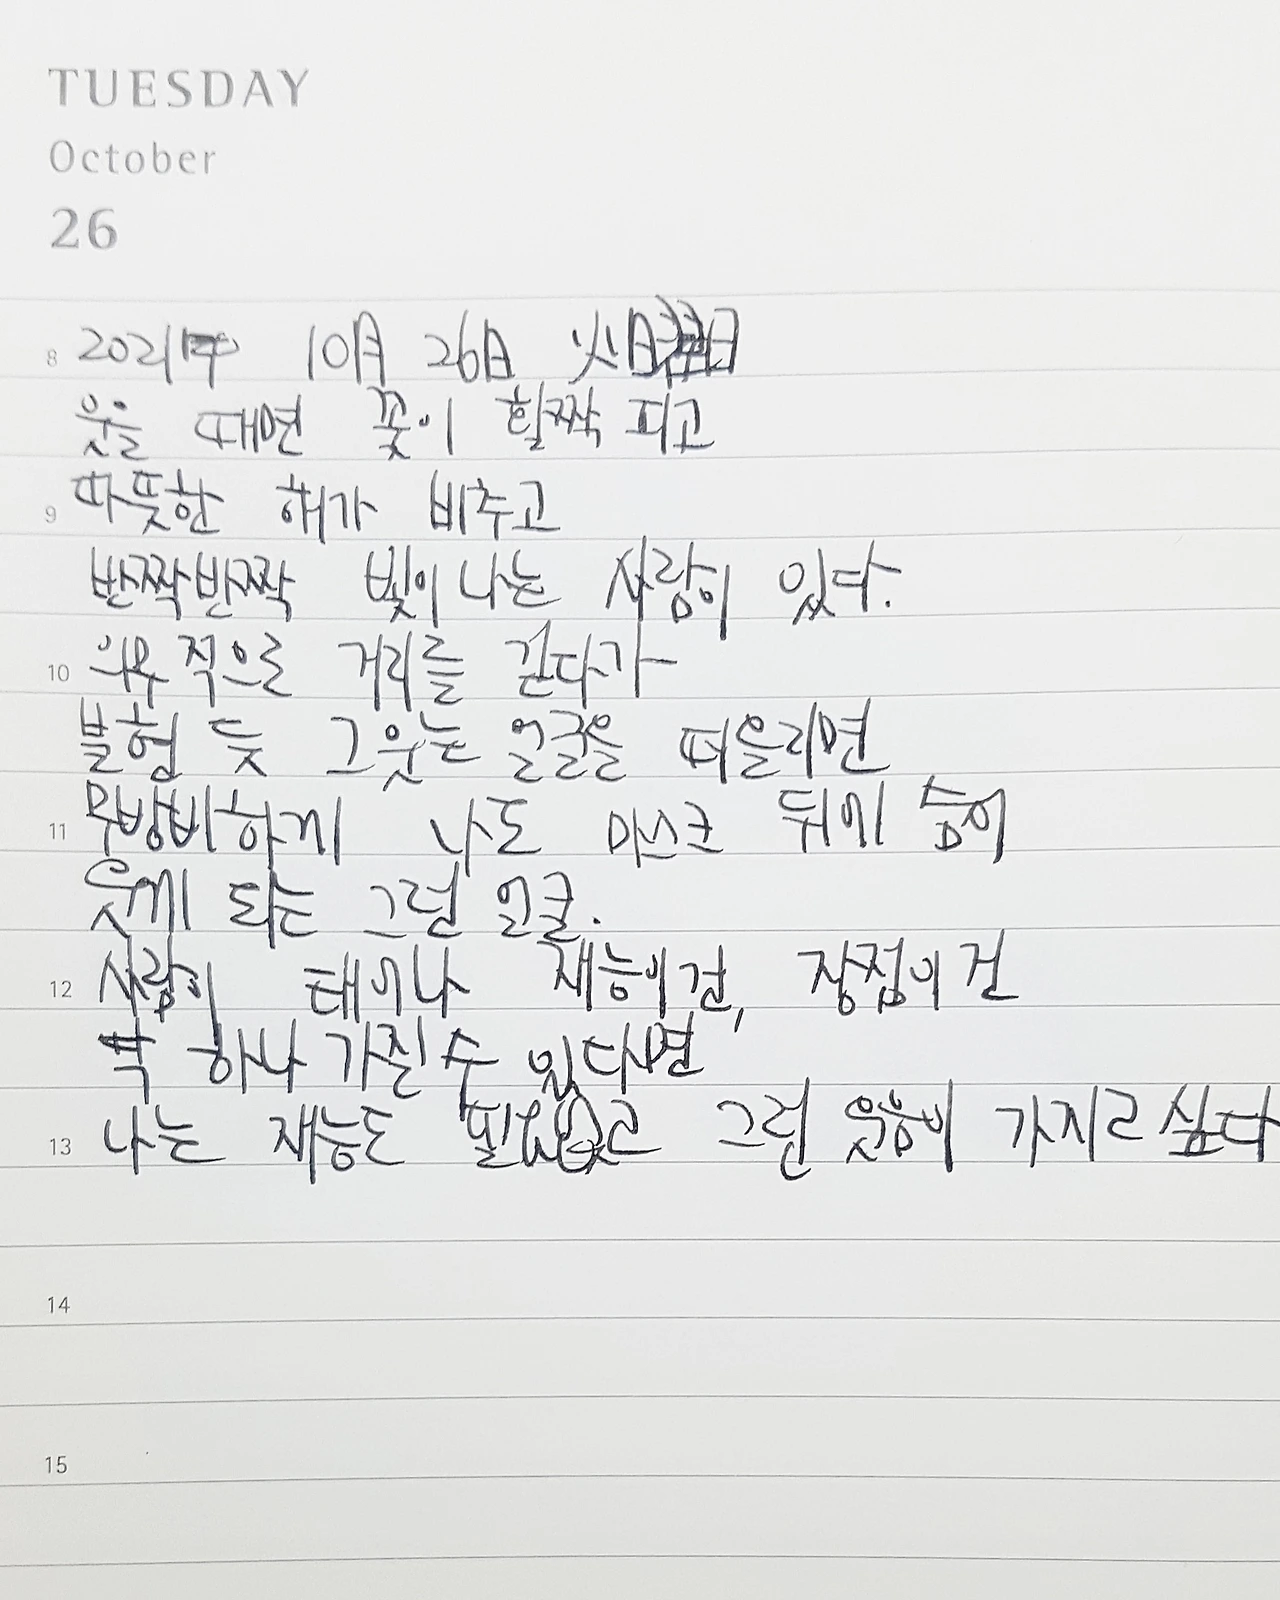 TUESDAY
October
26
8 2021年 10月 26日 火曜日
웃을 때면 꽃이 활짝 피고
9 따뜻한 해가 비추고
반짝반짝 빛이 나는 사람이 있다.
10 거리를 걷다가
불현듯 그 웃는 얼굴을 떠올리면
11 무방비하게 나도 마스크 뒤에 숨어
웃게 되는 그런 얼굴.
12 사람이 태어나 재능이건, 장점이건
꼭 하나 가질 수 있다면
13 나는 재능도 필요없고 그런 웃음이 가지고 싶다
14
15